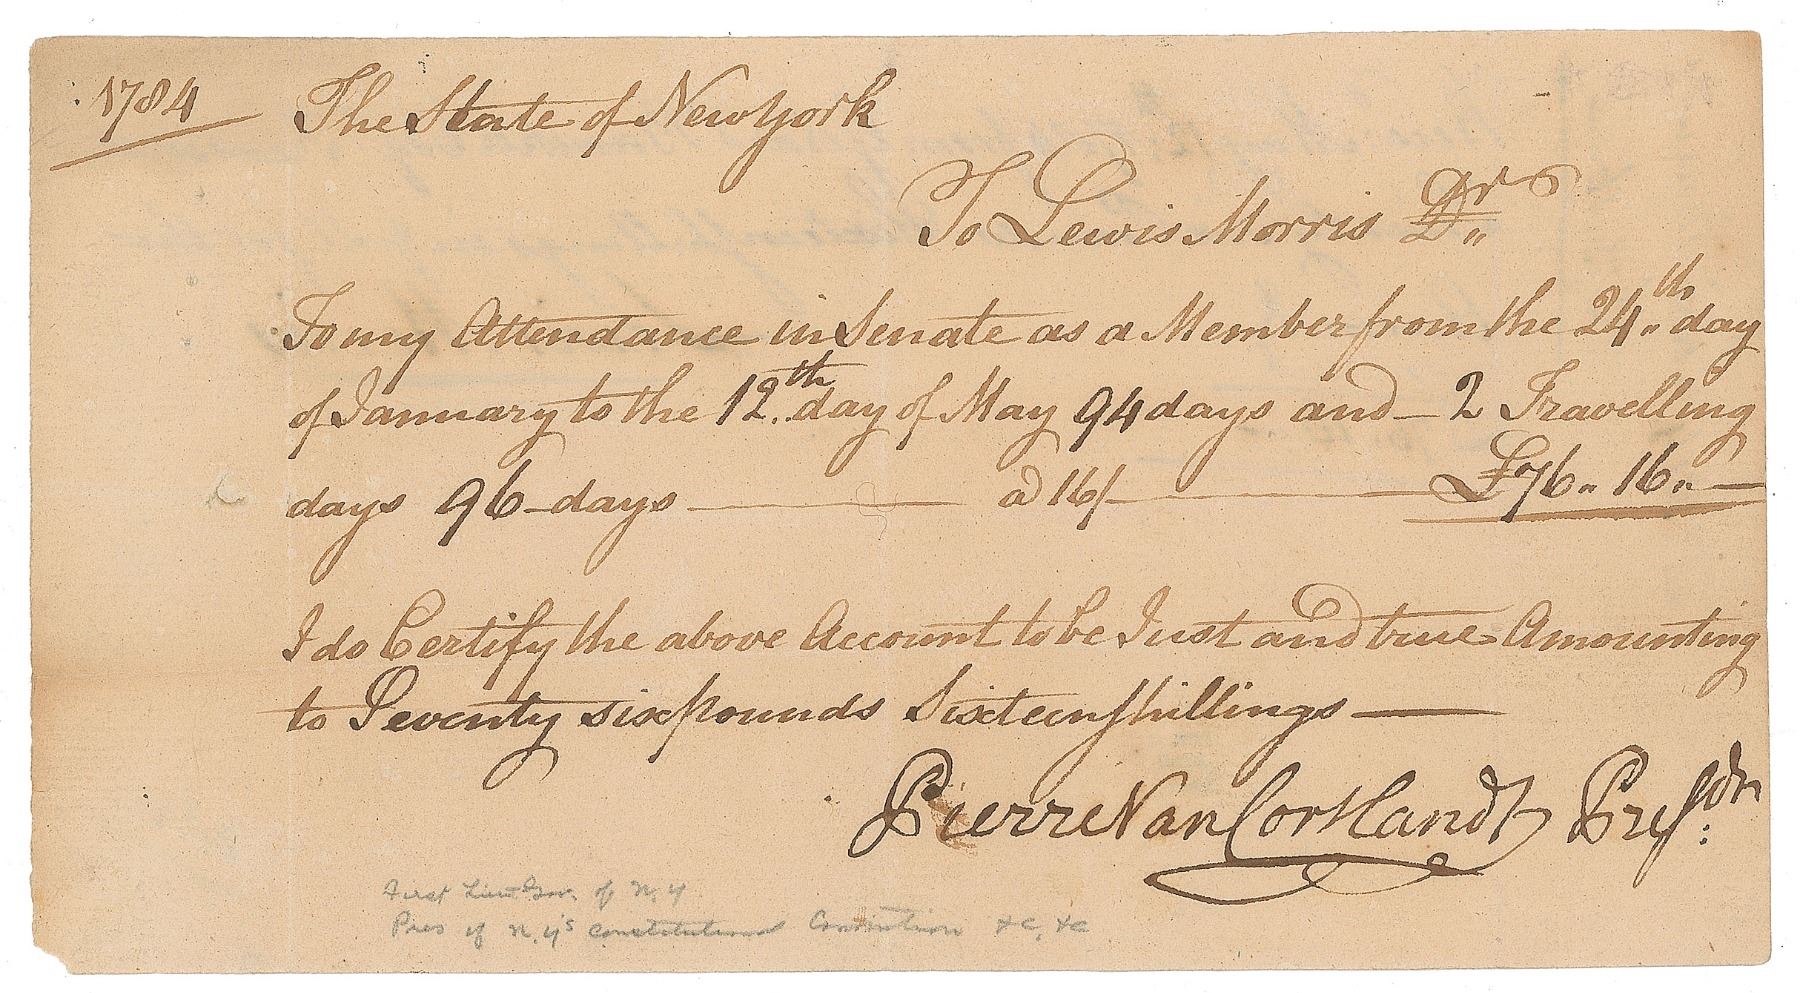 1784
The State of New York
To Lewis Morris Dr
To my Attendance in Senate as a Member from the 24th day
of January to the 12th day of May 94 days and – 2 Travelling
days 96 – days — a 16/ — £76 „ 16 „ —
I do Certify the above Account to be Just and true Amounting
to Seventy six pounds Sixteen shillings —
Pierre Van Cortlandt Presdt
First Lieut Gov. of N. Y
Pres of N. Y's Constitutional Convention &c, &c